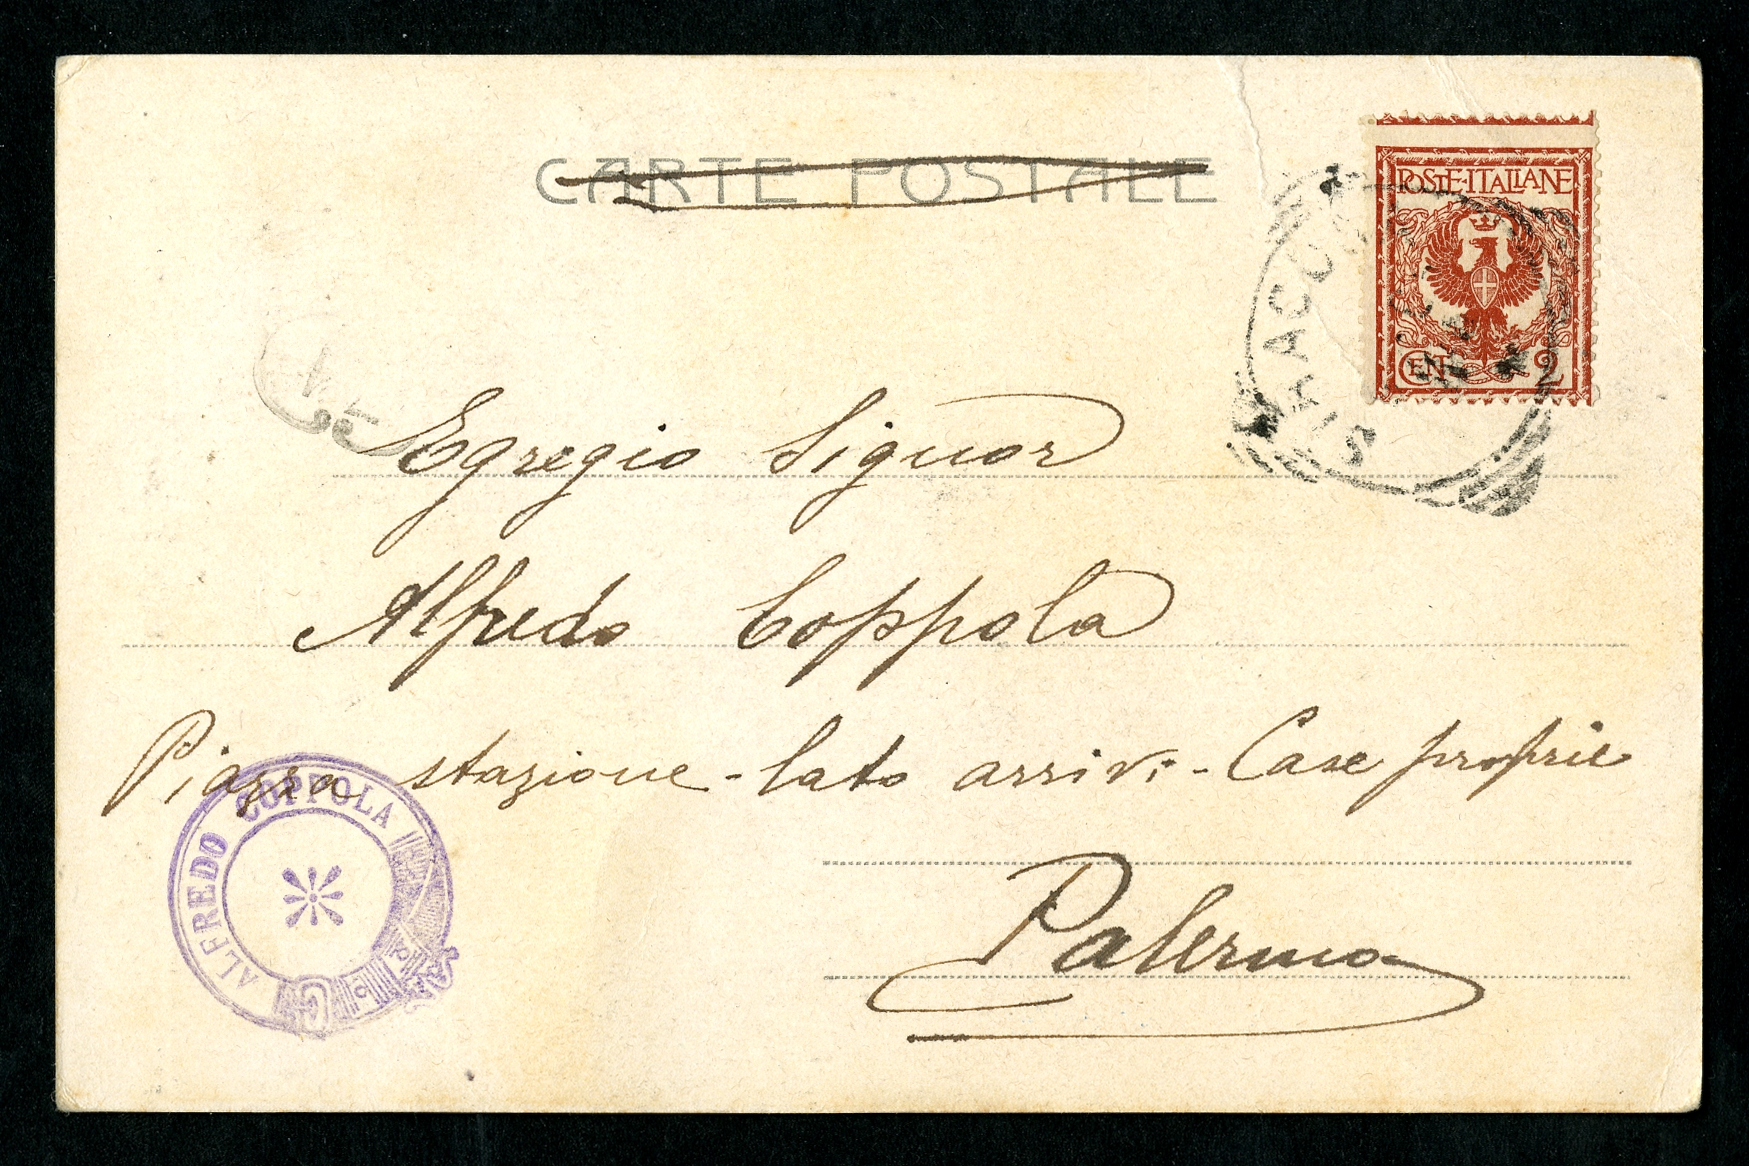 CARTE POSTALE
POSTE·ITALIANE
CENT. 2
SIRACUS
Egregio Signor
Alfredo Coppola
Piazza stazione - lato arrivi - Case proprie
Palermo
ALFREDO COPPOLA